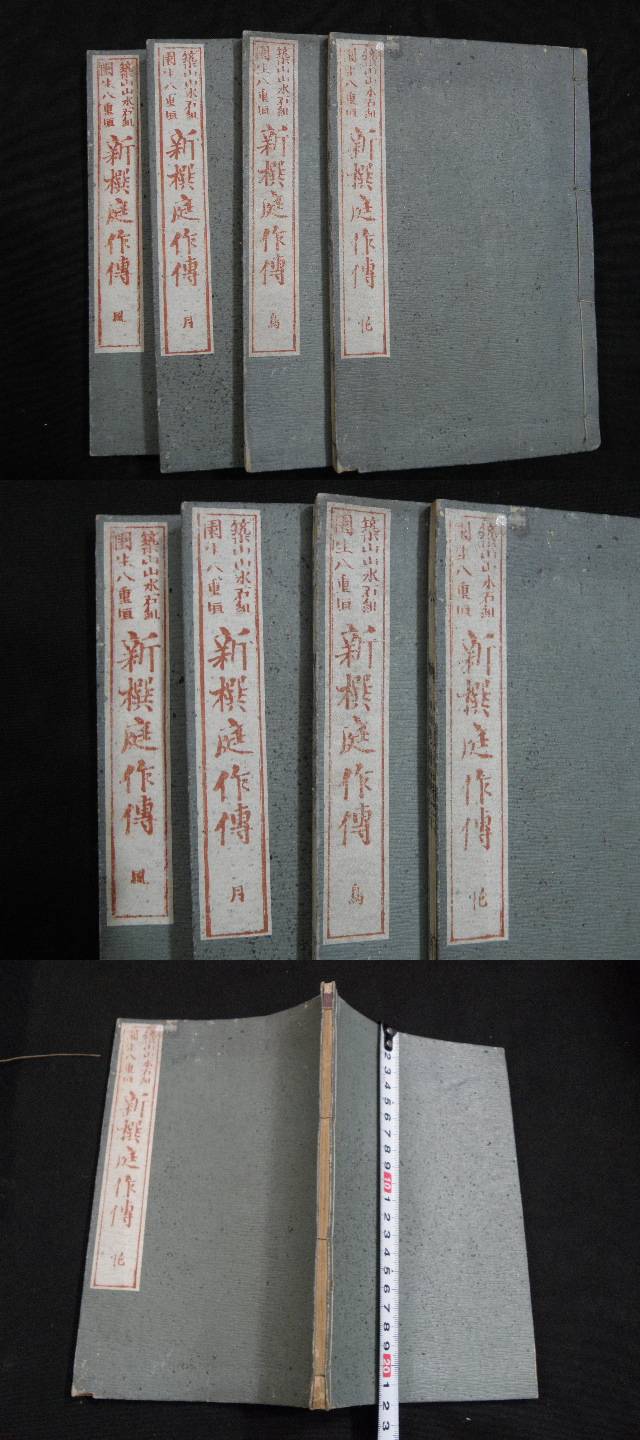 築山山水石組
園生八重垣
新撰庭作傳
花
築山山水石組
園生八重垣
新撰庭作傳
鳥
築山山水石組
園生八重垣
新撰庭作傳
月
築山山水石組
園生八重垣
新撰庭作傳
風
築山山水石組
園生八重垣
新撰庭作傳
花
築山山水石組
園生八重垣
新撰庭作傳
鳥
築山山水石組
園生八重垣
新撰庭作傳
月
築山山水石組
園生八重垣
新撰庭作傳
風
築山山水石組
園生八重垣
新撰庭作傳
花
2 3 4 5 6 7 8 9 10 1 2 3 4 5 6 7 8 9 20 1 2 3